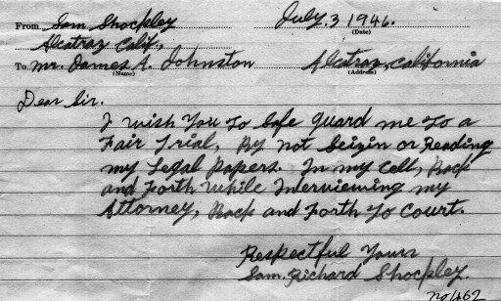 From Sam Shockley July.3 1946.
(Date)
Alcatraz Calif,
To Mr. James A. Johnston Alcatraz, California
(Name) (Address)
Dear Sir.
I wish You to Safe guard me to a
Fair Trial, By not Seizin or Reading
my Legal Papers. In my Cell, Back
and Forth While Interviewing my
Attorney, Back and Forth to Court.
Respectful Yours
Sam. Richard Shockley.
no 462